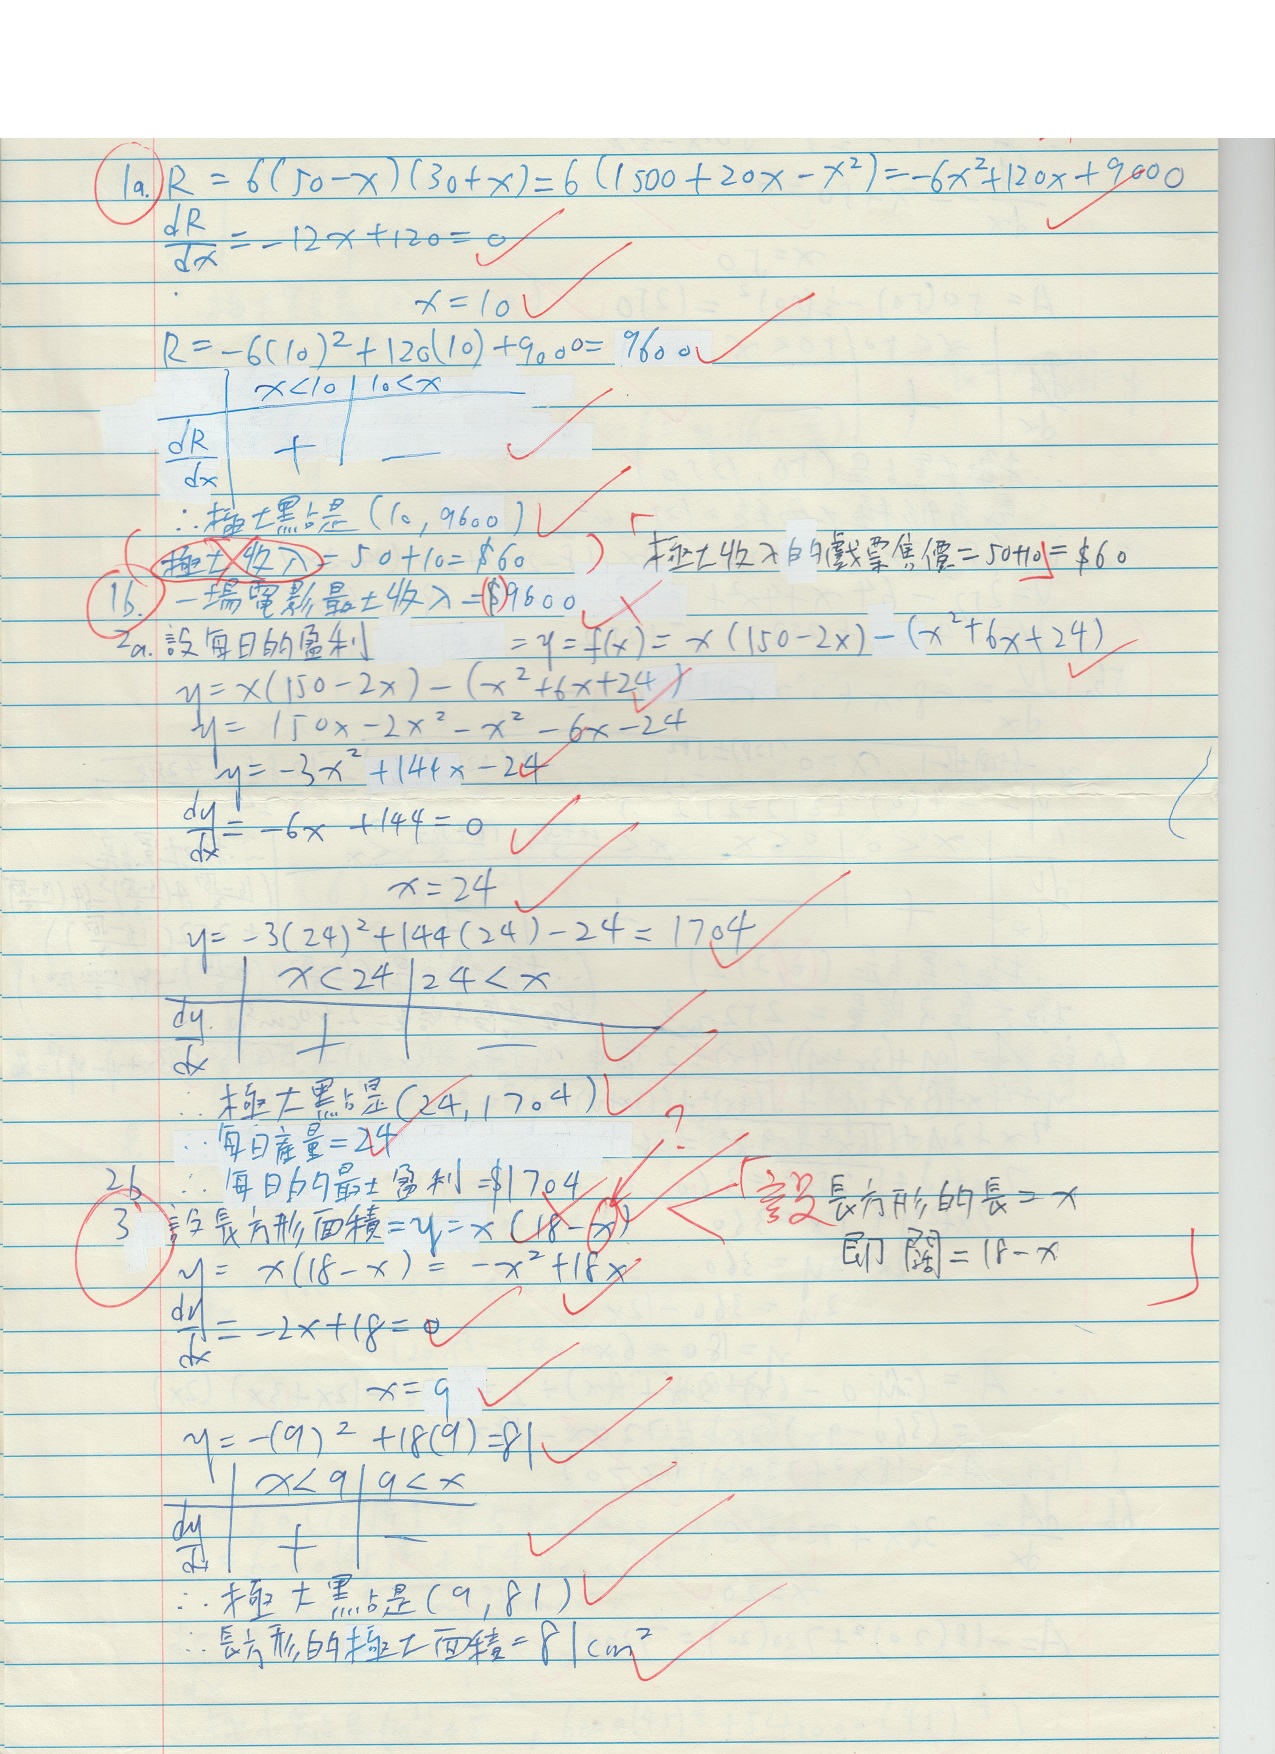 1a. R = 6(50-x)(30+x) = 6(1500+20x-x²) = -6x²+120x+9000
dR/dx = -12x+120 = 0
x = 10
R = -6(10)²+120(10)+9000 = 9600
x<10 | 10<x
dR/dx | + | —
∴極大點是(10, 9600)
極大收入 = 50+10 = $60 「極大收入的戲票售價=50+10」= $60
1b. 一場電影最大收入 = $9600
2a. 設每日的盈利 = y = f(x) = x(150-2x) - (x²+6x+24)
y = x(150-2x) - (x²+6x+24)
y = 150x-2x²-x²-6x-24
y = -3x²+144x-24
dy/dx = -6x+144 = 0
x = 24
y = -3(24)²+144(24)-24 = 1704
x<24 | 24<x
dy/dx | + | —
∴極大點是(24, 1704)
∴每日產量=24 ?
2b ∴每日的最大盈利=$1704
3 設長方形面積=y=x(18-x) 「設長方形的長=x
即闊=18-x」
y = x(18-x) = -x²+18x
dy/dx = -2x+18 = 0
x = 9
y = -(9)²+18(9) = 81
x<9 | 9<x
dy/dx | + | —
∴極大點是(9, 81)
∴長方形的極大面積=81cm²